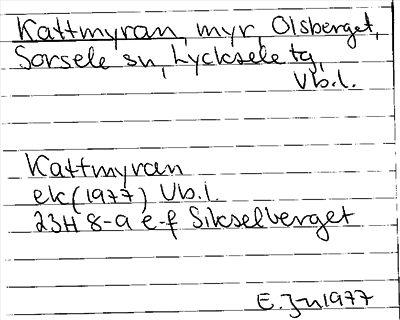 Kattmyran, myr, Olsberget,
Sorsele sn, Lycksele tg,
Vb.l.
Kattmyran
ek (1977) Vb.l.
23H 8-9 e-f Sikselberget
E. Jn 1977